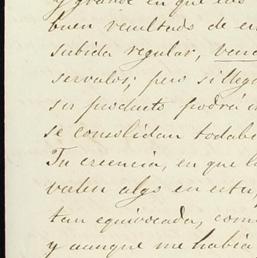 y grande en que los
buen resultado de en
subida regular, vend
servalos; pero si llega
su producto podrá
se consolidan todaba
Tu creencia, en que l
valen algo en esta,
tan equivocada, com
y aunque me había